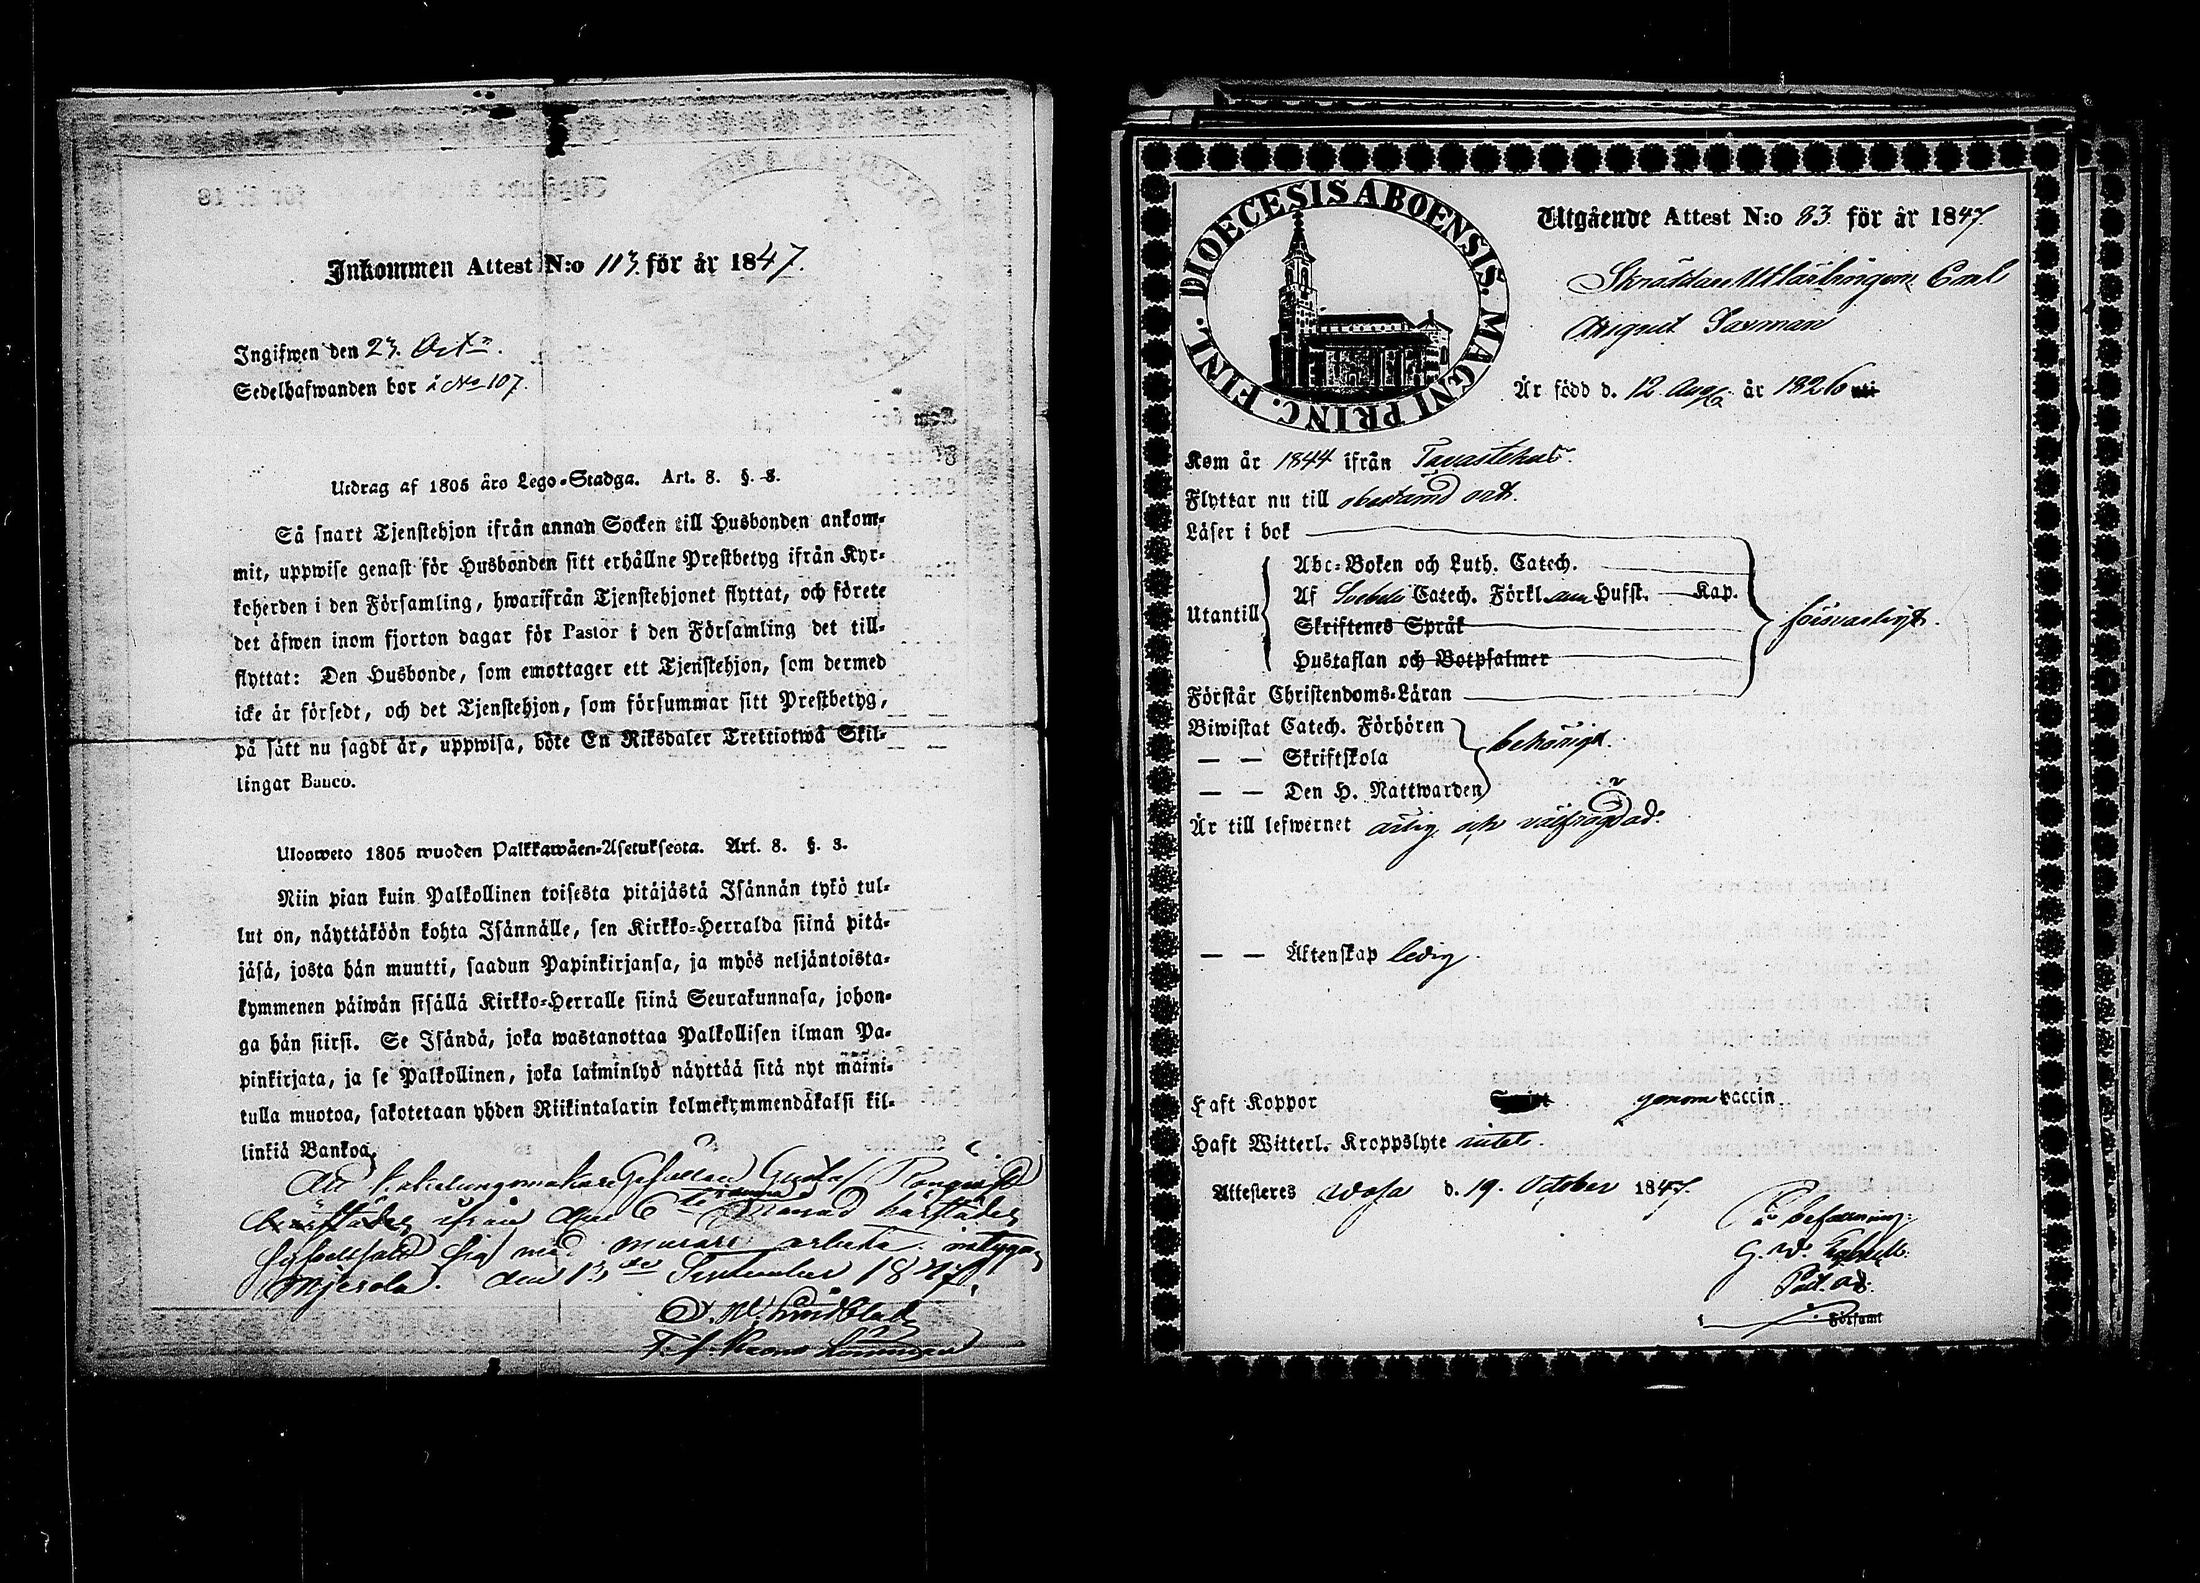 Inkommen Attest N:o 113. för år 1847.
Ingifwen den 23. Oct:n.
Sedelhafwanden bor i No 107.
Utdrag af 1805 års Lego-Stadga. Art. 8. §. 8.
Så snart Tjenstehjon ifrån annan Socken till Husbonden ankom-
mit, uppwise genast för Husbonden sitt erhållne Prestbetyg ifrån Kyr-
koherden i den Församling, hwarifrån Tjenstehjonet flyttat, och förete
det äfwen inom fjorton dagar för Pastor i den Församling det till-
flyttat: Den Husbonde, som emottager ett Tjenstehjon, som dermed
icke är försedt, och det Tjenstehjon, som försummar sitt Prestbetyg,
på sätt nu sagdt är, uppwisa, böte En Riksdaler Trettiotwå Skil-
lingar Banco.
Ulosweto 1805 wuoden Palkkawäen-Asetuksesta. Art. 8. §. 8.
Niin pian kuin Palkollinen toisesta pitäjästä Isännän tykö tul-
lut on, näyttäköön kohta Isännälle, sen Kirkko-Herralda siinä pitä-
jäsä, josta hän muutti, saadun Papinkirjansa, ja myös neljäntoista-
kymmenen päiwän sisällä Kirkko-Herralle siinä Seurakunnasa, johon-
ga hän siirsi. Se Isändä, joka wastanottaa Palkollisen ilman Pa-
pinkirjata, ja se Palkollinen, joka laiminlyö näyttää sitä nyt maini-
tulla muotoa, sakotetaan yhden Riikintalarin kolmekymmendäkaksi kil-
linkiä Bankoa.
Att kakelungsmakare Gesällen Gustaf
ifrån den 6te månad härstädes
sig med murare arbete intygar
den 13de September 1847.
Lundblad
T. f. Krono Länsman
DIOECESIS ABOENSIS. MAGNI PRINC. FINL.
Utgående Attest N:o 83 för år 1847.
Skräddare Utlärlingen Carl
August Saxman
Är född d. 12 Aug. år 1826
Kom år 1844 ifrån Tavastehus.
Flyttar nu till obestämd ort.
Läser i bok
Utantill
Abc-Boken och Luth. Catech.
Af Svebili Catech. Förkl. Husst. Kap.
Skriftenes Språk
Hustaflan och Botpsalmer
försvarligt.
Förstår Christendoms-Läran
Biwistat Catech. Förhören
— — Skriftskola
— — Den H. Nattwarden
behörigt.
Är till lefwernet ärlig och välfrägdad.
— — Äktenskap ledig.
Haft Koppor genom vaccin
Haft Witterl. Kroppslyte intet.
Attesteres Wasa d. 19. October 1847.
På befallning:
G. W.
Past. adj.
Församl